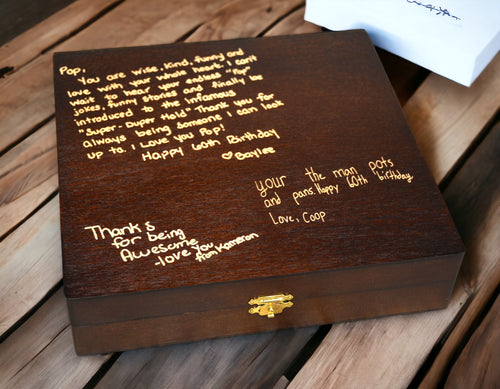 Pop,
You are wise, kind, funny and
love with your whole heart. I can't
wait to hear your endless "Pop"
jokes, funny stories and finally be
introduced to the infamous
"Super-Duper Hold" Thank you for
always being someone I can look
up to. I Love you Pop!
Happy 60th Birthday
♡Baylee
your the man pots
and pans. Happy 60th birthday
Love, Coop
Thanks
for being
Awesome
-love you
from Kameron